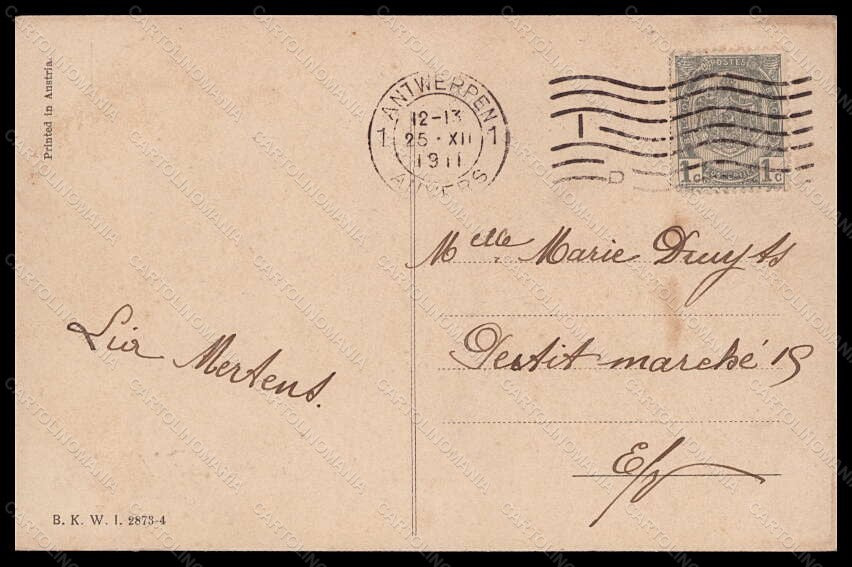 Printed in Austria.
ANTWERPEN
1 12-13 1
25 · XII
1911
ANVERS
POSTES
1c 1c
Melle Marie Druyts
marché 19
E/V
Mertens.
B. K. W. I. 2873-4
CARTOLINOMANIA